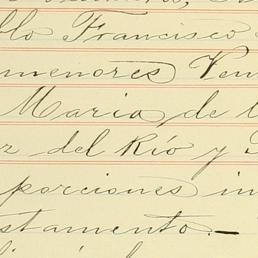 Francisco
menores Ven
Maria de l
r del Río y
porciones in
stamento.–